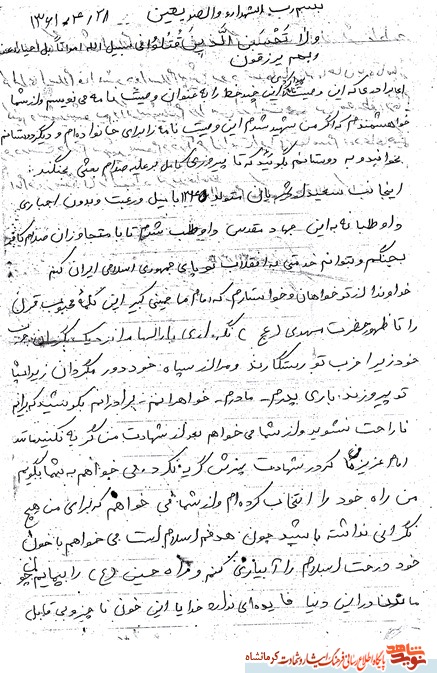 بسم رب الشهداء والصدیقین ۱۳۶۱/۴/۲۱
ولا تحسبن الذین قتلوا فی سبیل الله امواتا بل احیاء عند
ربهم یرزقون
ای برادری که این وصیت این چند خط را به عنوان وصیت نامه می نویسم و از شما
خواهشمندم که اگر من شهید شدم این وصیت نامه را برای خانواده ام و دیگر دوستانم
بخوانید و به دوستانم بگوئید که تا پیروزی کامل بر علیه صدام بعثی بجنگند
اینجانب سعید متولد ۱۳۴۵ با میل و رغبت و بدون اجباری
داوطلبانه به این جهاد مقدس داوطلب شدم تا با متجاوزان صدام کافر
بجنگم و بتوانم خدمتی به انقلاب نوپای جمهوری اسلامی ایران کنم
خداوندا از تو خواهان و خواستارم که امام خمینی کبیر این کلمهٔ محبوب قرن
را تا ظهور حضرت مهدی (عج) نگهداری بارالها مرا از
خود زیرا حزب تو رستگارند و مرا از سپاه خود دور مگردان زیرا سپاه
تو پیروزند. باری پدرم - مادرم - خواهرانم - برادرانم بکوشید که برایم
ناراحت نشوید و از شما می خواهم بعد از شهادت من گریه نکنید
امام عزیز ما که در شهادت پسرش گریه نکرد. می خواهم به شما بگویم
من راه خود را انتخاب کرده ام و از شما می خواهم که برای من هیچ
نگرانی نداشته باشید چون هدفم اسلام است. می خواهم با خون
خود درخت اسلام را آبیاری کنم و راه حسین (ع) را بپیمایم چون
ماندن در این دنیا فایده ای ندارد خدایا این خون ناچیز وبی قابل
نوید شاهد
پایگاه اطلاع رسانی فرهنگ ایثار و شهادت کرمانشاه